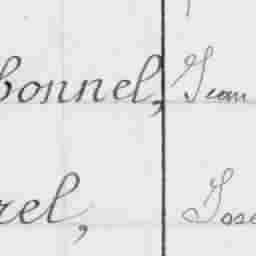 bonnel, Jean
rel, Jose